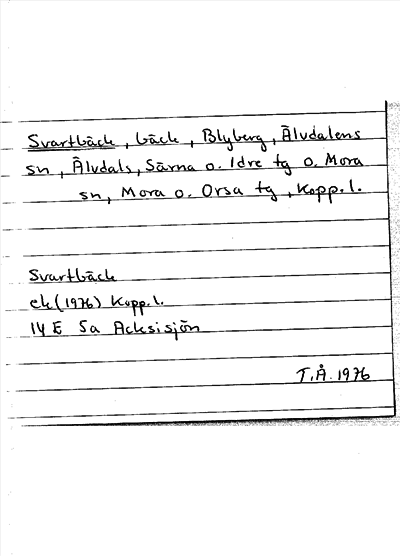 Svartbäck, bäck, Blyberg, Älvdalens
sn, Älvdals, Särna o. Idre tg o. Mora
sn, Mora o. Orsa tg, Kopp. l.
Svartbäck
ek (1976) Kopp. l.
14 E 5a Acksisjön
T.Å. 1976